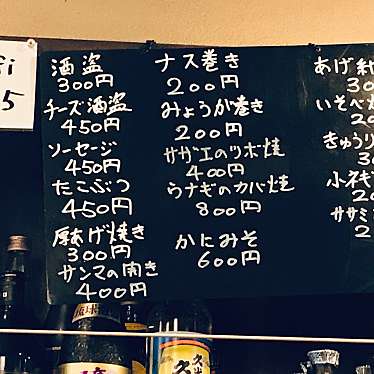 酒盗
300円
チーズ酒盗
450円
ソーセージ
450円
たこぶつ
450円
厚あげ焼き
300円
サンマの開き
400円
ナス巻き
200円
みょうが巻き
200円
サザエのツボ焼
400円
ウナギのカバ焼
800円
かにみそ
600円
あげ
30
いそべ
20
きゅうり
3
小ネギ
20
ササミ
2
fi
5
琉球
久